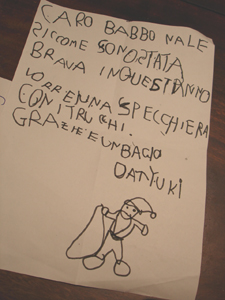 CARO BABBO NALE
SICCOME SONOSTATA
BRAVA INQUESTANNO
VORREIUNA SPECCHIERA
CONITRUCCHI.
GRAZIEEUNBACIO
DATYUKI